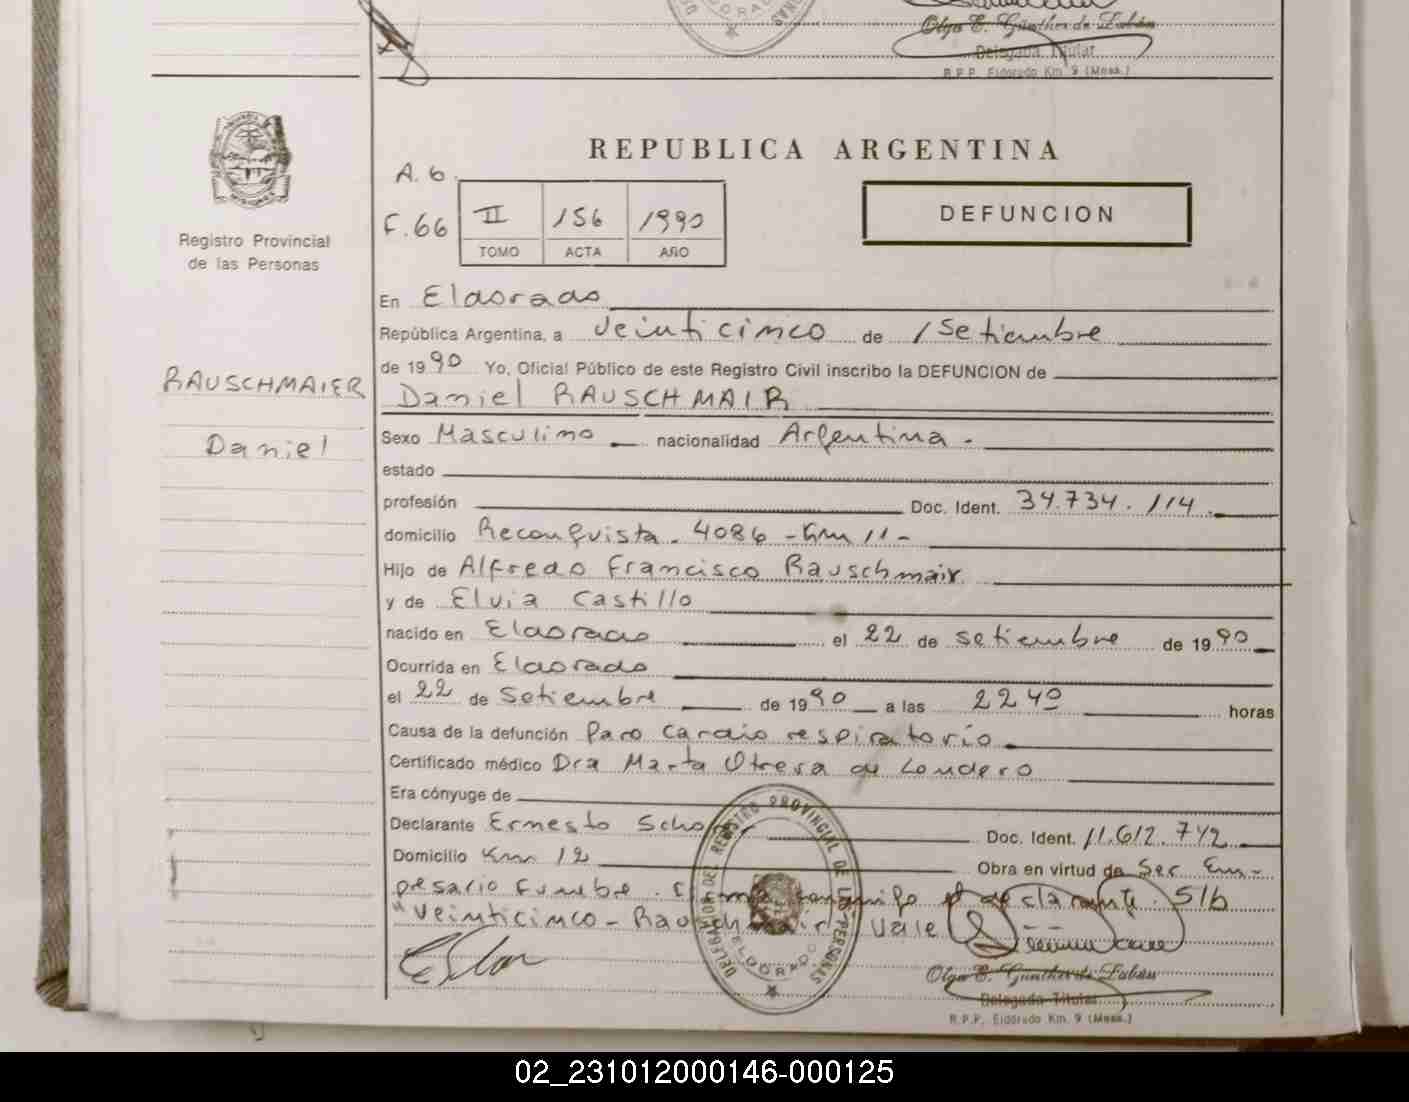 Olga E. Günther de Labán
Delegada Titular
R.P.P. Eldorado Km. 9 (Mnes.)
MISIONES
Registro Provincial
de las Personas
RAUSCHMAIER
Daniel
REPUBLICA ARGENTINA
A. 6.
F. 66
II 156 1990
TOMO ACTA AÑO
DEFUNCION
En Eldorado
República Argentina, a veinticinco de setiembre
de 1990 Yo, Oficial Público de este Registro Civil inscribo la DEFUNCION de
Daniel RAUSCHMAIR
Sexo Masculino nacionalidad Argentina.
estado
profesión Doc. Ident. 34.734.114.
domicilio Reconquista. 4086 - Km 11 -
Hijo de Alfredo Francisco Rauschmair
y de Elvia Castillo
nacido en Eldorado el 22 de setiembre de 1990
Ocurrida en Eldorado
el 22 de setiembre de 1990 a las 22 40 horas
Causa de la defunción Paro Cardio respiratorio
Certificado médico Dra Marta Otresa de Londero
Era cónyuge de
Declarante Ernesto Doc. Ident. 11.612.742
Domicilio Km 12 Obra en virtud de Ser Em-
presario Funebre. conmigo el declarante. S/b
"veinticinco - Rauschmair" Vale
DELEGACION DEL REGISTRO PROVINCIAL DE LAS PERSONAS
ELDORADO
Olga E. Günther de Labán
Delegada Titular
R.P.P. Eldorado Km. 9 (Mnes.)
02_231012000146-000125